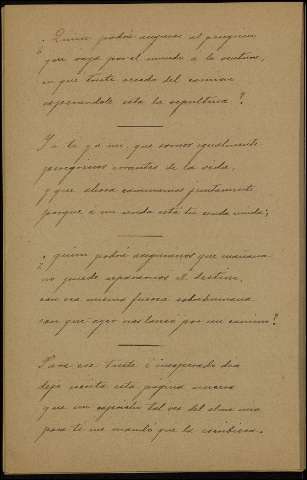 ¿Quien podrá asegurar al peregrino
que vaga por el mundo a la ventura,
en que triste recodo del camino
esperandole esta la sepultura?
Y a ti y a mi, que somos igualmente
peregrinos errantes de la vida,
y que ahora caminamos juntamente
porque a mi senda está tu senda unida;
¿quien podrá asegurarnos que mañana
no puede separarnos el destino,
con esa misma fuerza sobrehumana
con que ayer nos lanzó por un camino?
Para ese triste é inesperado dia
dejo escrita esta página
que un capricho tal vez del alma mia
para ti me mandó que la escribiera.